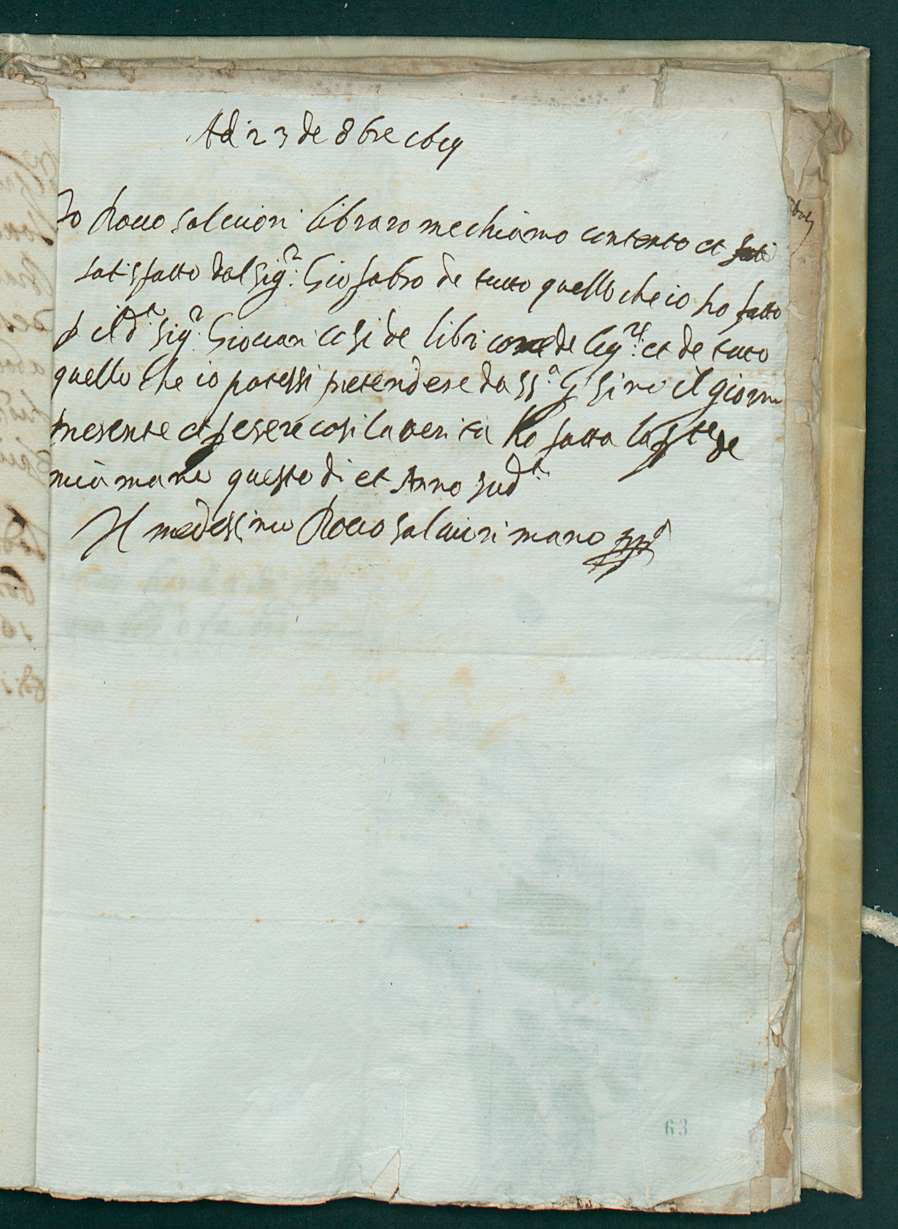 Adi 23 de 8bre
Io Rocco Salcioni libraro me chiamo contento et
satisfatto dal Sig.r Gio fabro de tutto quello che io ho fatto
p il d.o Sig.r Giovani cosi de libri come de leg.re et de tutto
quello che io potessi pretendere da SS.a sino il giorno
presente et p esere cosi la verita ho fatta la p.te de
mia mano questo di et Anno sud.to
Il medesimo Rocco Salcioni mano pp.a
63